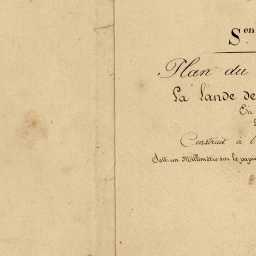 Sen
Plan du
La lande de
En
Construit à l
Soit un Millimètre sur le papier